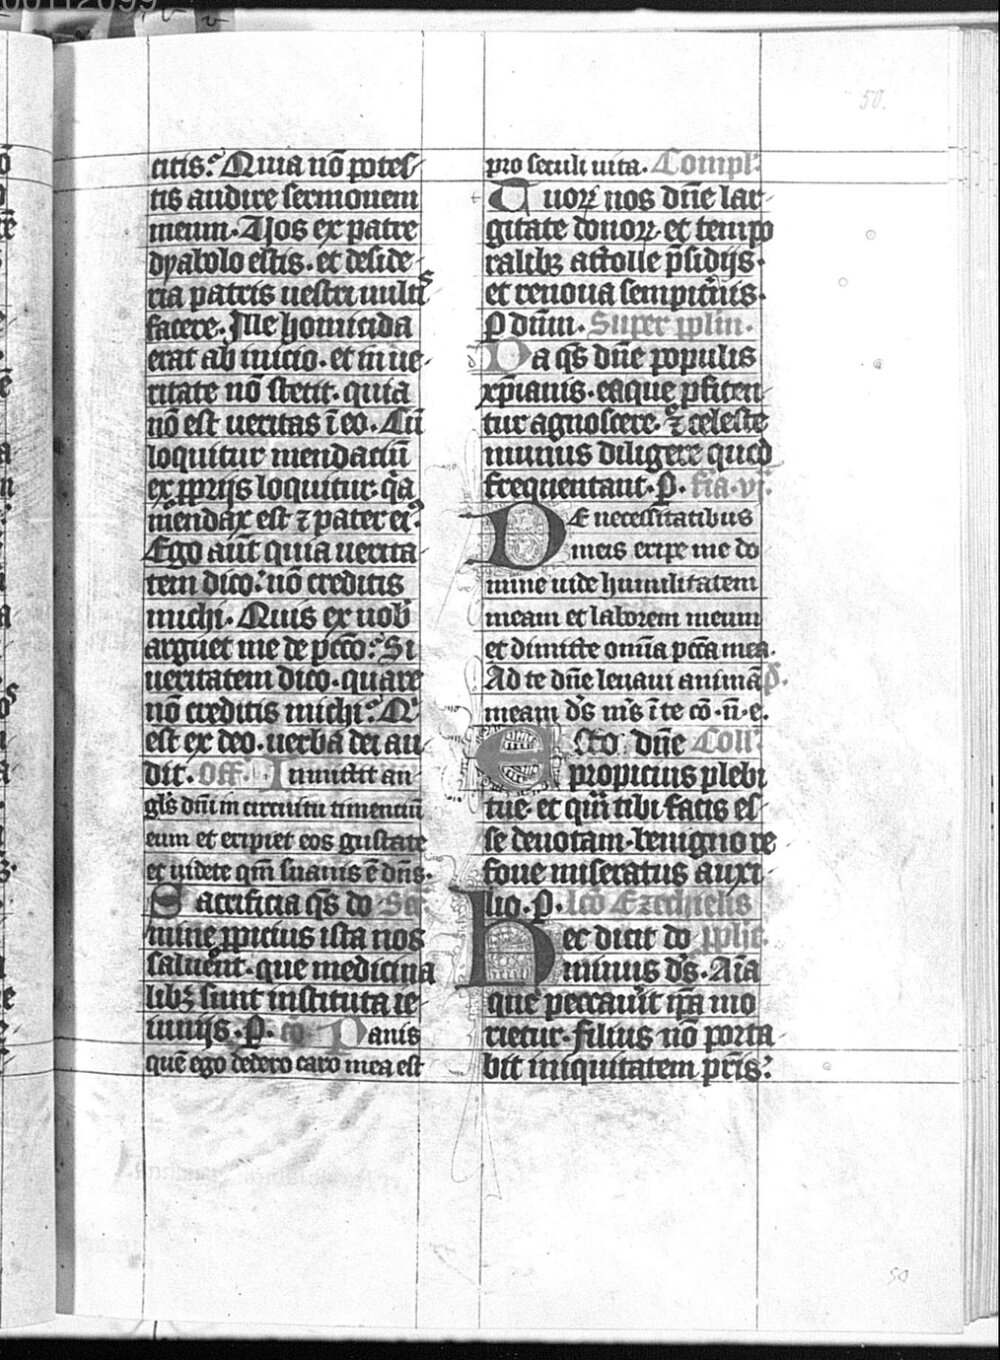 citis? Quia nō potes
tis audire sermonem
meum. Uos ex patre
dyabolo estis. et deside
ria patris uestri uultis
facere. Ille homicida
erat ab inicio. et in ue
ritate nō stetit. quia
nō est ueritas ī eo. Cū
loquitur mendaciū
ex ꝓprijs loquitur. qͥa
mendax est ⁊ pater eiꝰ.
Ego aūt quia uerita
tem dico? nō creditis
michi. Quis ex uob̄
arguet me de pcc̄o? Si
ueritatem dico. quare
nō creditis michi? Qͥ
est ex deo. uerba dei au
dit. Off. Inmittit an
gl̄s dn̄i in circuitu timenciū
eum et eripiet eos gustate
et uidete qm̄ suauis ē dn̄s.
Sacrificia qs̄ do Scr̄.
mine ꝓpicius ista nos
saluent. que medicina
libꝫ sunt instituta ie
iunijs. P. co Panis
quē ego dedero caro mea est
pro seculi uita. Compl̄.
Quoꝝ nos dn̄e lar
gitate donoꝝ et tempo
ralibꝫ attolle p̄sidijs.
et renoua sempitnis.
P dūm. Super pplm̄.
Da qs̄ dn̄e populis
xp̄ianis. eaque ꝓfiten
tur agnoscere. ⁊ celeste
munus diligere quod
frequentant. P. fīa vj.
De necessitatibus
meis eripe me do
mine uide humilitatem
meam et laborem meum
et dimitte omīa pcc̄a mea.
Ad te dn̄e leuaui animā p̄.
meam ds̄ ms̄ ī te cō. n̄. e.
Esto dn̄e Coll̄.
propicius plebi
tue. et quā tibi facis es
se deuotam. benigno re
foue miseratus auxi
lio. P. Lcō Ezechielis
Hec dicit do ꝓph̄e.
minus ds̄. Aīa
que peccauīt ip̄a mo
rietur. filius nō porta
bit iniquitatem pr̄is?
50.
50